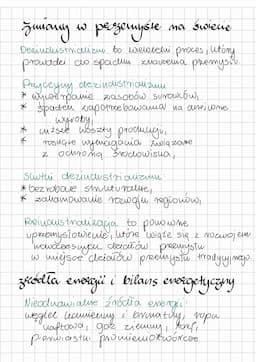 Zmiany w przemyśle na świecie
Dezindustrializm to wieloletni proces, który
prowadzi do spadku znaczenia przemysłu.
Przyczyny dezindustrializmu
* wyczerpanie zasobów surowców,
* spadek zapotrzebowania na dawne
wyroby,
* wyższe koszty produkcji,
* rosnące wymagania związane
z ochroną środowiska,
Skutki dezindustrializmu
* bezrobocie strukturalne,
* zahamowanie rozwoju regionów,
Reindustrializacja to ponowne
uprzemysłowienie, które wiąże się z rozwojem
nowoczesnych działów przemysłu
w miejsce działów przemysłu tradycyjnego.
Źródła energii i bilans energetyczny
Nieodnawialne źródła energii:
węgiel kamienny i brunatny, ropa
naftowa, gaz ziemny, torf,
pierwiastki promieniotwórcze